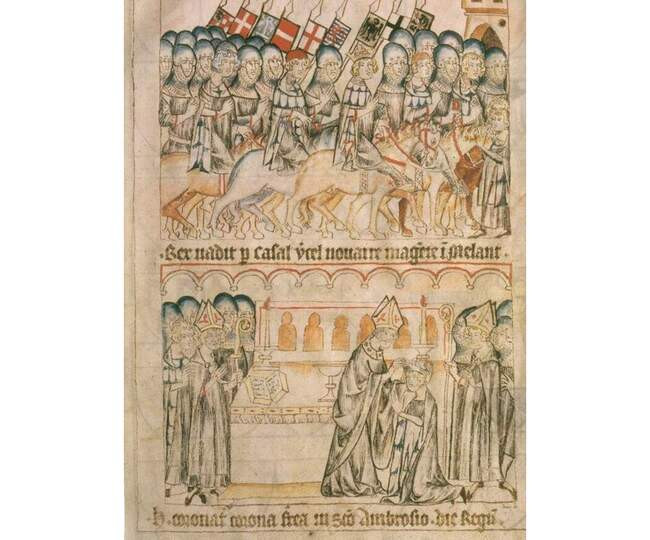 Rex uadit p Casal v'cel nouarre mag̅ete ī Melant ·
h · coronat' corona f'rea in sc̅o Ambrosio · die Regū ·